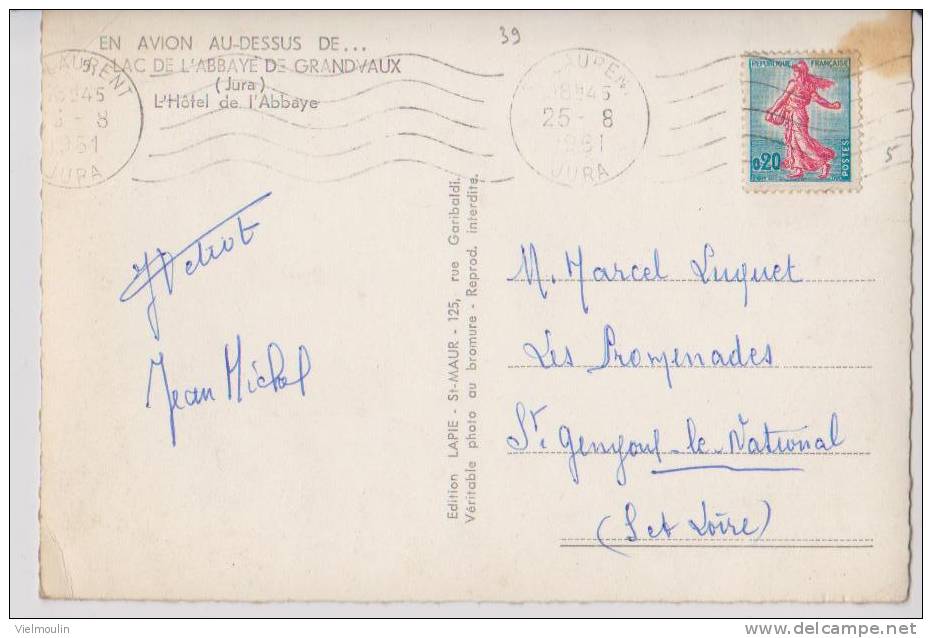 EN AVION AU-DESSUS DE...
LAC DE L'ABBAYE DE GRANDVAUX
(Jura)
L'Hôtel de l'Abbaye
39
LAURENT
18H45
8
1961
JURA
LAUREN
18H45
25-8
1961
JURA
REPUBLIQUE FRANÇAISE
0,20
POSTES
5
Jean Michel
Edition LAPIE - St-MAUR - 125, rue Garibaldi.
Véritable photo au bromure - Reprod. interdite.
M. Marcel Luquet
Les Promenades
St. Gengoux-le-National
(S et Loire)
Vielmoulin
delcampe.net